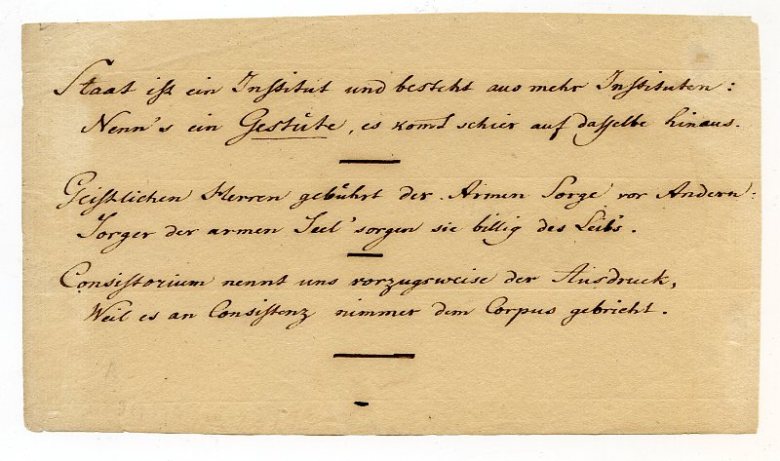 Staat ist ein Institut und besteht aus mehr Instituten:
Nenn's ein Gestüte, es komt schier auf dasselbe hinaus.
Geistlichen Herren gebührt der Armen Sorge vor Andern:
Sorger der armen Seel' sorgen sie billig des Leib's.
Consistorium nennt uns vorzugsweise der Ausdruck,
Weil es an Consistenz nimmer dem Corpus gebricht.